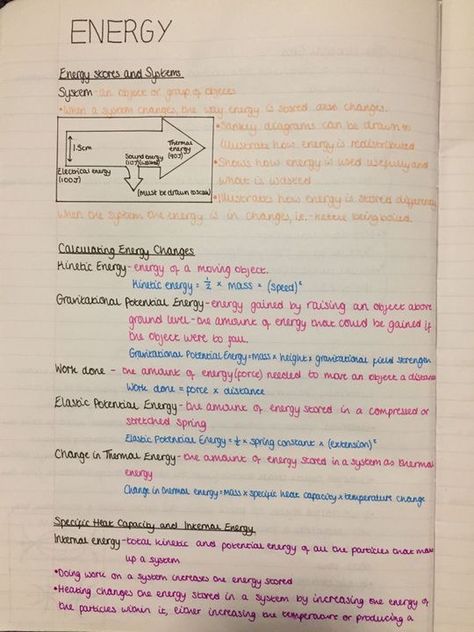 ENERGY
Energy stores and Systems
System - an object or group of objects
• When a system changes, the way energy is stored also changes.
1.5cm
Electrical energy
(100J)
Sound energy
(10J)(wasted)
Thermal
energy
(90J)
(Must be drawn to scale)
• Sankey diagrams can be drawn to
illustrate how energy is redistributed
• Shows how energy is used usefully and
what is wasted
• Illustrates how energy is stored differently
when the system the energy is in changes, i.e. - kettle being boiled.
Calculating Energy Changes
Kinetic Energy - energy of a moving object.
Kinetic energy = ½ × mass × (speed)²
Gravitational Potential Energy - energy gained by raising an object above
ground level - the amount of energy that could be gained if
the object were to fall.
Gravitational Potential Energy = mass × height × gravitational field strength
Work done - the amount of energy (force) needed to move an object a distance
Work done = force × distance
Elastic Potential Energy - the amount of energy stored in a compressed or
stretched spring
Elastic Potential Energy = ½ × spring constant × (extension)²
Change in Thermal Energy - the amount of energy stored in a system as thermal
energy
Change in thermal energy = mass × specific heat capacity × temperature change
Specific Heat Capacity and Internal Energy
Internal energy - total kinetic and potential energy of all the particles that make
up a system
• Doing work on a system increases the energy stored
• Heating changes the energy stored in a system by increasing the energy of
the particles within it, either increasing the temperature or producing a